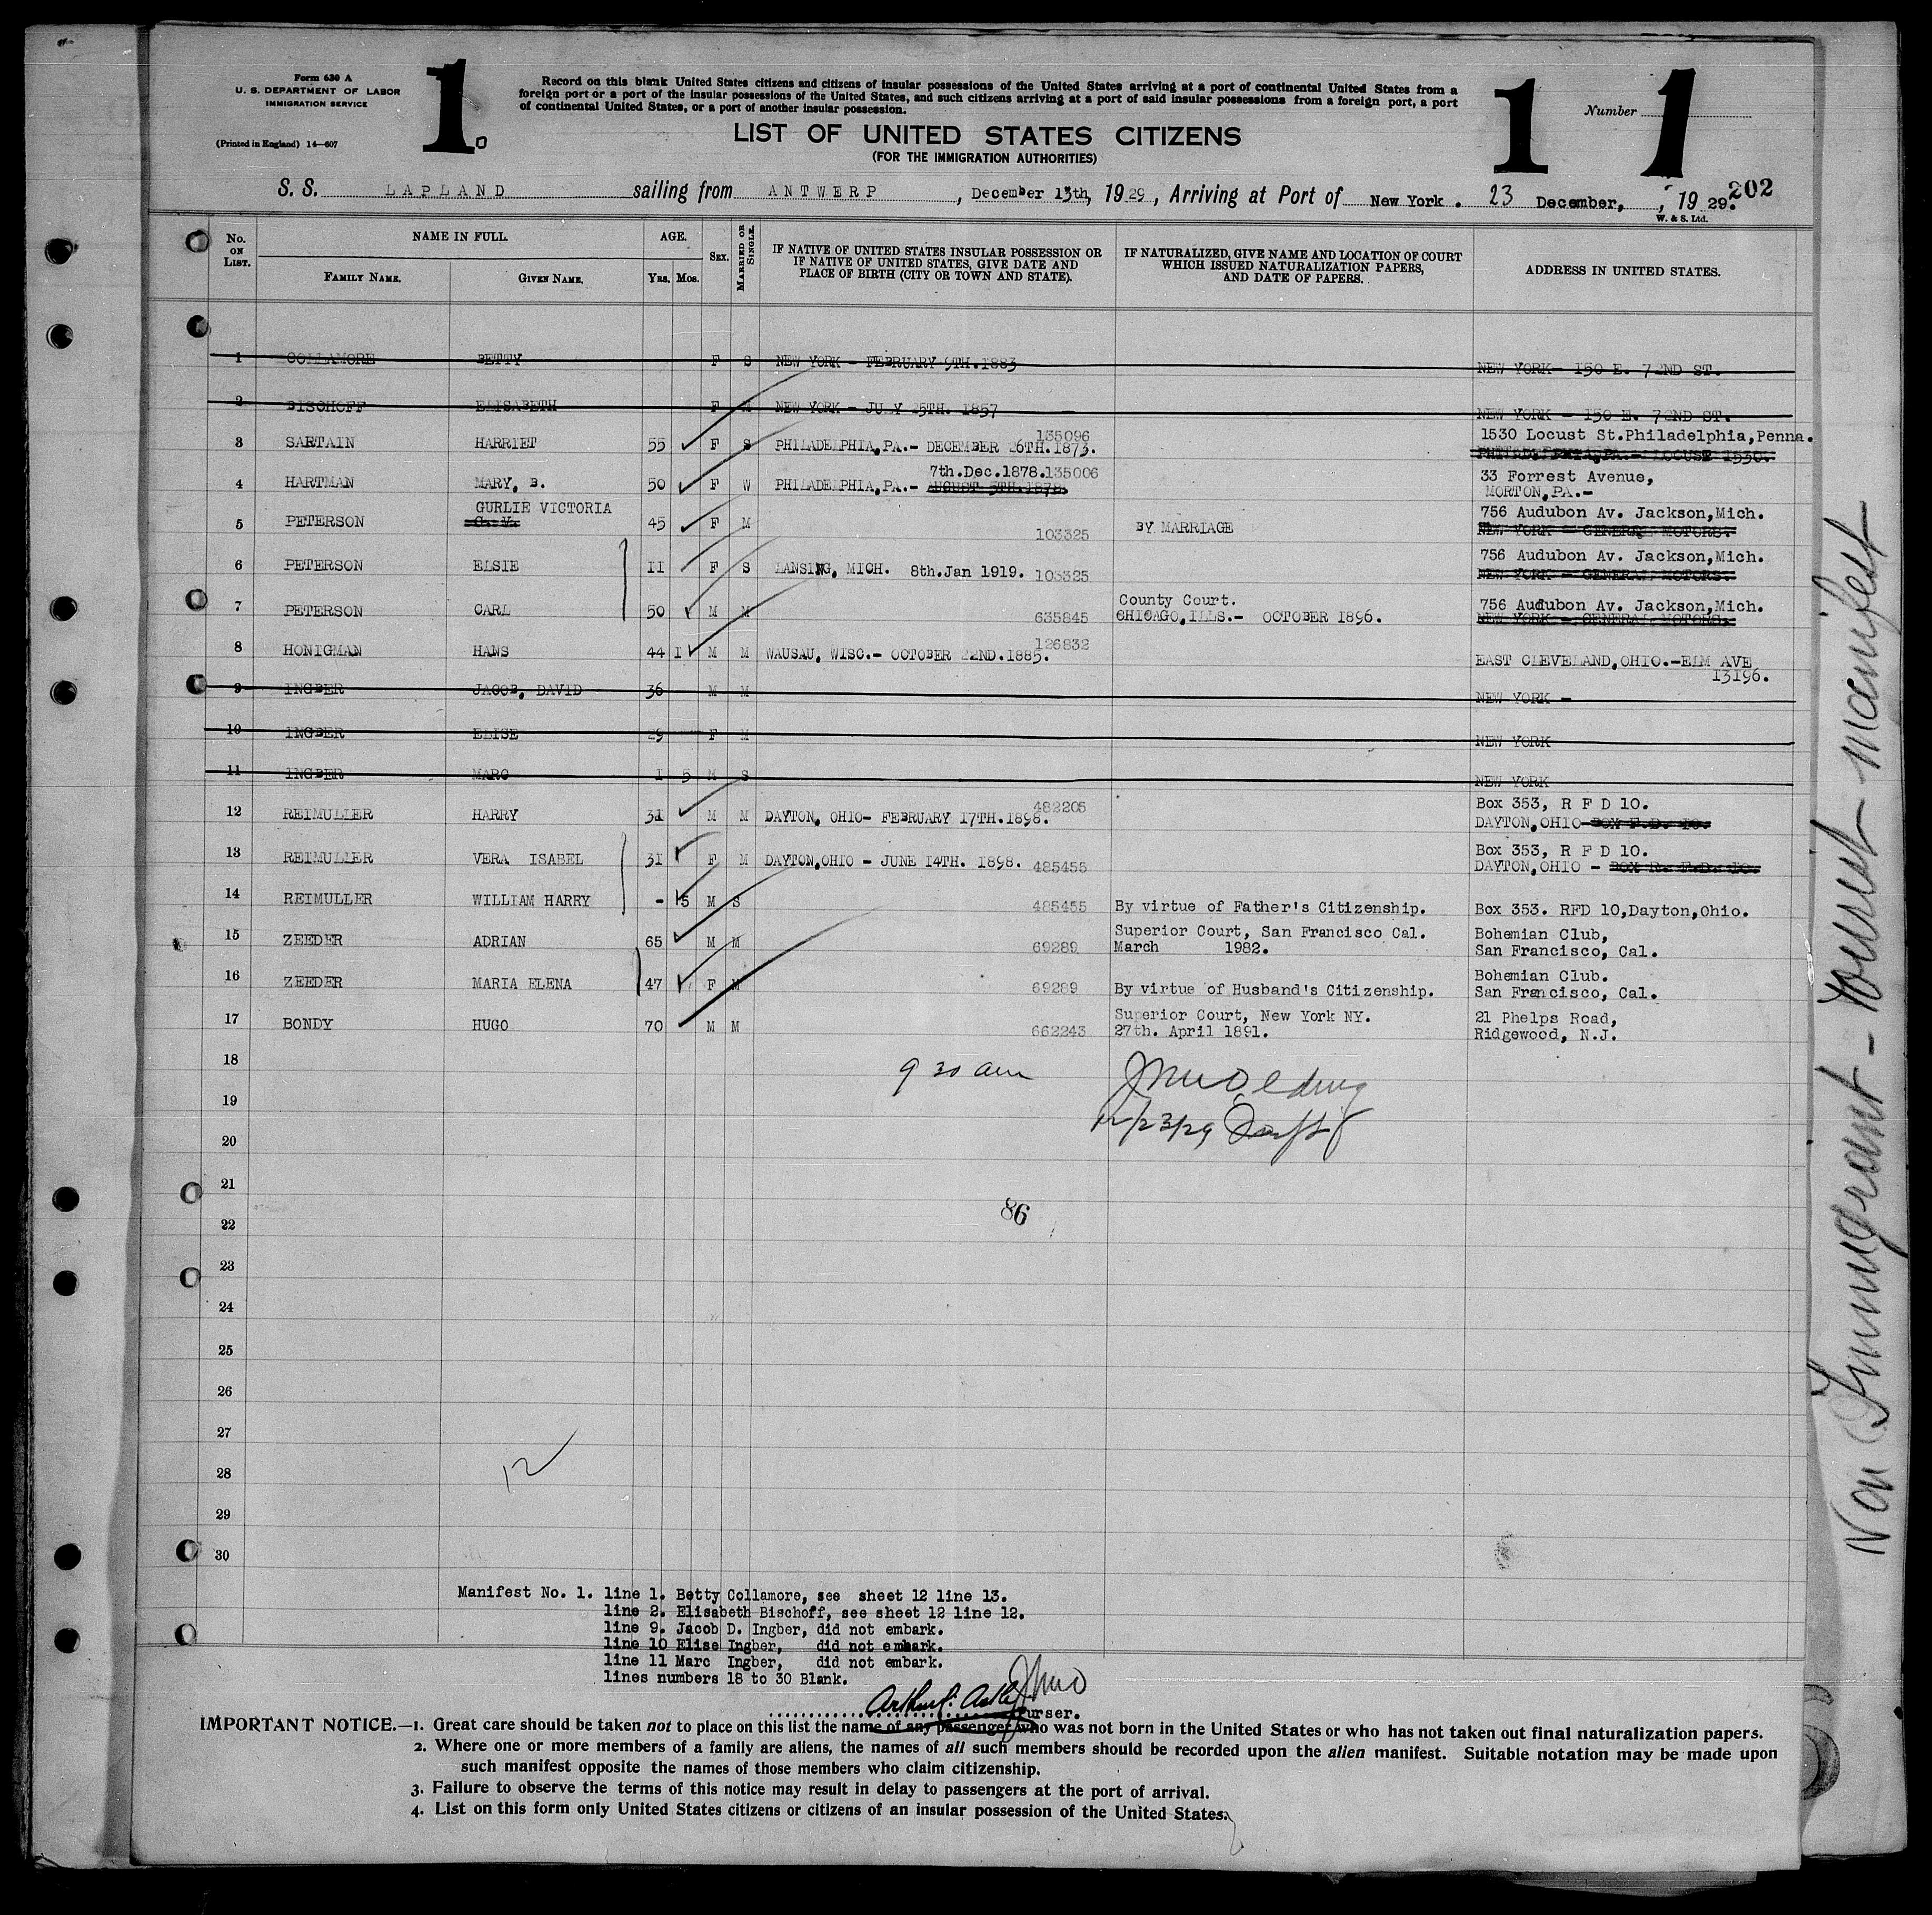 Form 630 A
U. S. DEPARTMENT OF LABOR
IMMIGRATION SERVICE
(Printed in England) 14—607
1.
Record on this blank United States citizens and citizens of insular possessions of the United States arriving at a port of continental United States from a
foreign port or a port of the insular possessions of the United States, and such citizens arriving at a port of said insular possessions from a foreign port, a port
of continental United States, or a port of another insular possession.
LIST OF UNITED STATES CITIZENS
(FOR THE IMMIGRATION AUTHORITIES)
1 Number 1
S. S. LAPLAND sailing from ANTWERP, December 13th, 1929, Arriving at Port of New York. 23 December, , 1929. 202
W. & S. Ltd.
No. ON LIST. NAME IN FULL. FAMILY NAME. GIVEN NAME. AGE. Yrs. Mos. SEX. MARRIED OR SINGLE. IF NATIVE OF UNITED STATES INSULAR POSSESSION OR IF NATIVE OF UNITED STATES, GIVE DATE AND PLACE OF BIRTH (CITY OR TOWN AND STATE). IF NATURALIZED, GIVE NAME AND LOCATION OF COURT WHICH ISSUED NATURALIZATION PAPERS, AND DATE OF PAPERS. ADDRESS IN UNITED STATES.
1 COLLAMORE BETTY F S NEW YORK - FEBRUARY 9TH.1883 NEW YORK- 150 E. 72ND ST.
2 BISCHOFF ELISABETH F M NEW YORK - JULY 25TH. 1857 NEW YORK - 150 E. 72ND ST.
135096 1530 Locust St.Philadelphia,Penna.
3 SARTAIN HARRIET 55 F S PHILADELPHIA,PA.- DECEMBER 26TH.1873. PHILADELPHIA,PA.- LOCUSE 1530.
7th.Dec.1878.135006 33 Forrest Avenue,
4 HARTMAN MARY, B. 50 F W PHILADELPHIA,PA.- AUGUST 5TH.1878. MORTON,PA.-
GURLIE VICTORIA 756 Audubon Av. Jackson,Mich.
5 PETERSON G. V. 45 F M 103325 BY MARRIAGE NEW YORK - GENERAL MOTORS.
756 Audubon Av. Jackson,Mich.
6 PETERSON ELSIE II F S LANSING, MICH. 8th.Jan 1919. 103325 NEW YORK - GENERAL MOTORS.
County Court. 756 Audubon Av. Jackson,Mich.
7 PETERSON CARL 50 M M 635845 CHICAGO,ILLS.- OCTOBER 1896. NEW YORK - GENERAL MOTORS.
126832
8 HONIGMAN HANS 44 I M M WAUSAU, WISC.- OCTOBER 22ND.1885. EAST CLEVELAND,OHIO.-ELM AVE
13196.
9 INGBER JACOB, DAVID 36 M M NEW YORK -
10 INGBER ELISE 29 F M NEW YORK
11 INGBER MARC I 5 M S NEW YORK
482205 Box 353, R F D 10.
12 REIMULLER HARRY 31 M M DAYTON, OHIO- FEBRUARY 17TH.1898. DAYTON,OHIO-BOX F.D. 10.
Box 353, R F D 10.
13 REIMULLER VERA ISABEL 31 F M DAYTON,OHIO - JUNE 14TH. 1898. 485455 DAYTON,OHIO - BOX R. F.D. 10.
14 REIMULLER WILLIAM HARRY - 5 M S 485455 By virtue of Father's Citizenship. Box 353. RFD 10,Dayton,Ohio.
Superior Court, San Francisco Cal. Bohemian Club,
15 ZEEDER ADRIAN 65 M M 69289 March 1982. San Francisco, Cal.
Bohemian Club.
16 ZEEDER MARIA ELENA 47 F M 69289 By virtue of Husband's Citizenship. San Francisco, Cal.
Superior Court, New York NY. 21 Phelps Road,
17 BONDY HUGO 70 M M 662243 27th. April 1891. Ridgewood, N.J.
18 9 30 am
19
12/23/29
20
21
22 86
23
24
25
26
27
28 12
29
30
Manifest No. 1. line 1. Betty Collamore, see sheet 12 line 13.
line 2. Elisabeth Bischoff, see sheet 12 line 12.
line 9. Jacob D. Ingber, did not embark.
line 10 Elise Ingber, did not embark.
line 11 Marc Ingber, did not embark.
lines numbers 18 to 30 Blank.
Purser.
IMPORTANT NOTICE.—1. Great care should be taken not to place on this list the name of any passenger who was not born in the United States or who has not taken out final naturalization papers.
2. Where one or more members of a family are aliens, the names of all such members should be recorded upon the alien manifest. Suitable notation may be made upon
such manifest opposite the names of those members who claim citizenship.
3. Failure to observe the terms of this notice may result in delay to passengers at the port of arrival.
4. List on this form only United States citizens or citizens of an insular possession of the United States.
Non Immigrant - Tourist manifest